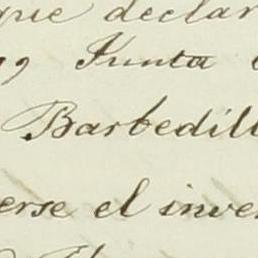 que declar
Junta
Barbedill
erse el inve